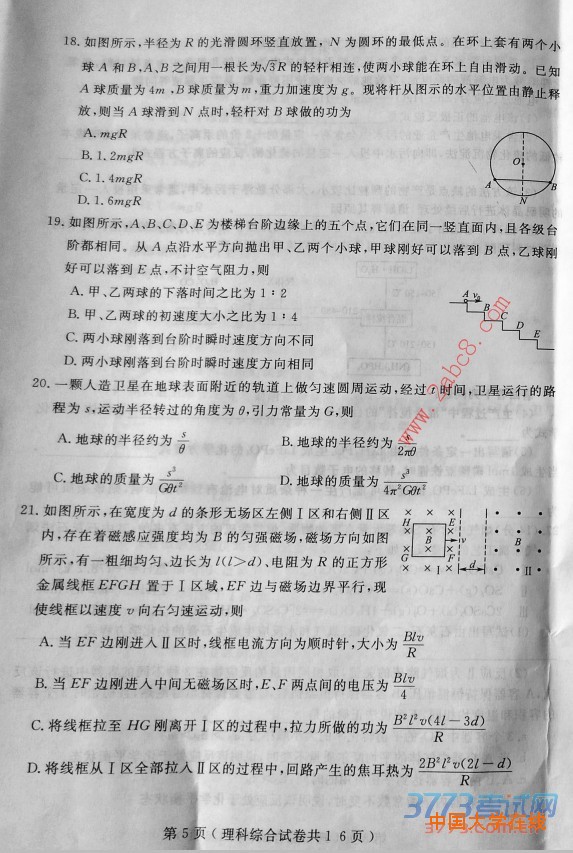 18. 如图所示,半径为 R 的光滑圆环竖直放置, N 为圆环的最低点。在环上套有两个小
球 A 和 B,A、B 之间用一根长为√3R 的轻杆相连,使两小球能在环上自由滑动。已知
A 球质量为 4m ,B 球质量为 m,重力加速度为 g。现将杆从图示的水平位置由静止释
放,则当 A 球滑到 N 点时,轻杆对 B 球做的功为
A. mgR
B. 1.2mgR
C. 1.4mgR
D. 1.6mgR
O
A
B
N
19. 如图所示,A、B、C、D、E 为楼梯台阶边缘上的五个点,它们在同一竖直面内,且各级台
阶都相同。从 A 点沿水平方向抛出甲、乙两个小球,甲球刚好可以落到 B 点,乙球刚
好可以落到 E 点,不计空气阻力,则
A. 甲、乙两球的下落时间之比为 1∶2
B. 甲、乙两球的初速度大小之比为 1∶4
C. 两小球刚落到台阶时瞬时速度方向不同
D. 两小球刚落到台阶时瞬时速度方向相同
A v₀
B
C
D
E
20. 一颗人造卫星在地球表面附近的轨道上做匀速圆周运动,经过 t 时间,卫星运行的路
程为 s,运动半径转过的角度为 θ,引力常量为 G,则
A. 地球的半径约为 s/θ B. 地球的半径约为 s/2πθ
C. 地球的质量为 s³/Gθt² D. 地球的质量为 s³/4π²Gθt²
21. 如图所示,在宽度为 d 的条形无场区左侧Ⅰ区和右侧Ⅱ区
内,存在着磁感应强度均为 B 的匀强磁场,磁场方向如图
所示,有一粗细均匀、边长为 l(l>d)、电阻为 R 的正方形
金属线框 EFGH 置于Ⅰ区域,EF 边与磁场边界平行,现
使线框以速度 v 向右匀速运动,则
H E
B v B
G F
Ⅰ d Ⅱ
A. 当 EF 边刚进入Ⅱ区时,线框电流方向为顺时针,大小为 Blv/R
B. 当 EF 边刚进入中间无磁场区时,E、F 两点间的电压为 Blv/4
C. 将线框拉至 HG 刚离开Ⅰ区的过程中,拉力所做的功为 B²l²v(4l－3d)/R
D. 将线框从Ⅰ区全部拉入Ⅱ区的过程中,回路产生的焦耳热为 2B²l²v(2l－d)/R
第 5 页(理科综合试卷共 1 6 页)
www.2abc8.com
3773考试网
中国大学在线
3773.com